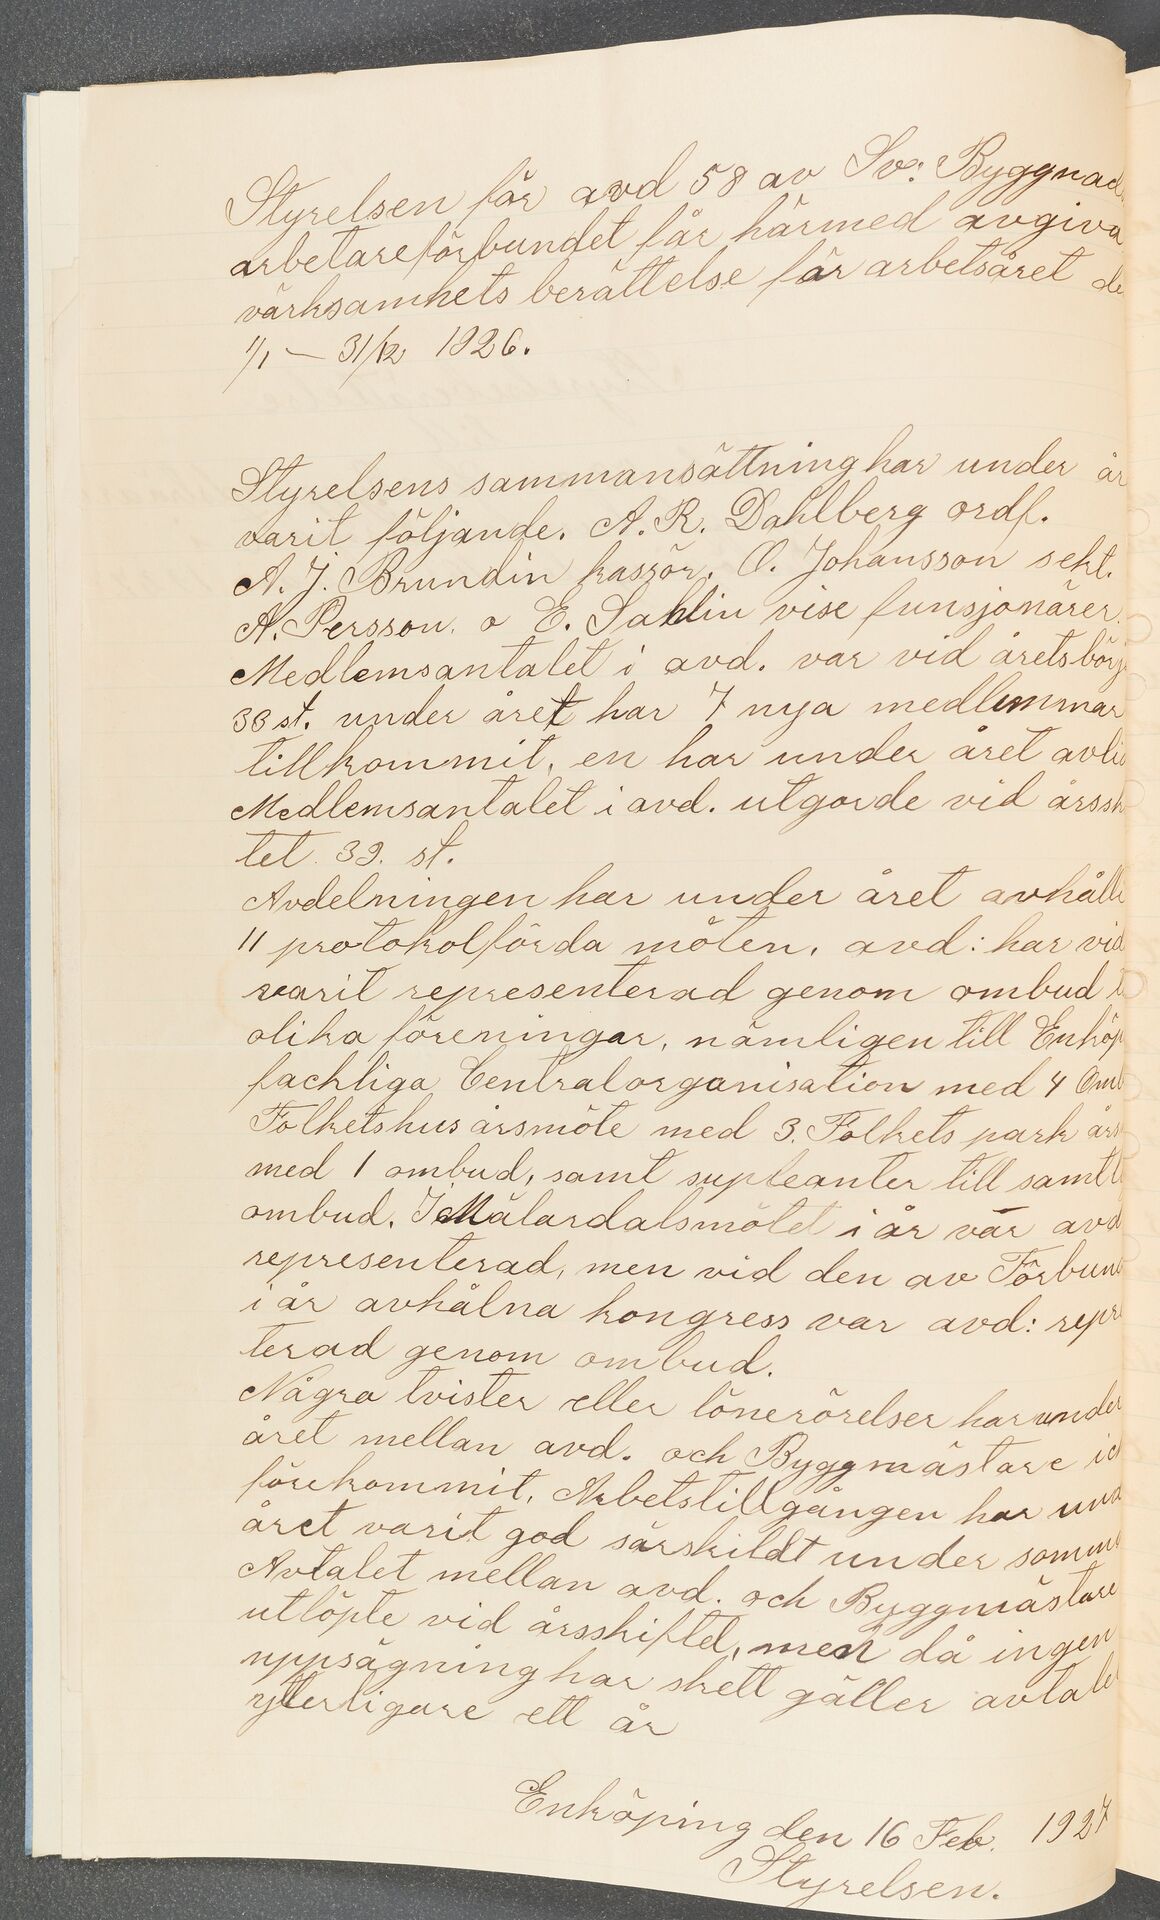 Styrelsen för avd 58 av Sv: Byggnad
arbetareförbundet får härmed avgiva
värksamhets berättelse för arbetsåret de
1/1 – 31/12 1926.
Styrelsens sammansättning har under år
varit följande. A. R. Dahlberg ordf.
A. J. Brundin kassör. O. Johansson sekt.
A. Persson. o E. Sahlin vise funsjonärer.
Medlemsantalet i avd. var vid årets börj
33 st. under året har 7 nya medlemmar
tillkommit, en har under året avli
Medlemsantalet i avd. utgorde vid årssk
tet. 39. st.
Avdelningen har under året avhålli
11 protokolförda möten, avd: har vid
varit representerad genom ombud t
olika föreningar, nämligen till Enköp
fachliga Centralorganisation med 4 Omb
Folketshus årsmöte med 3. Folkets park års
med 1 ombud, samt supleanter till samtl
ombud. I Mälardalsmötet i år var avd
representerad, men vid den av Förbund
i år avhålna kongress var avd: repre
terad genom ombud.
Några tvister eller lönerörelser har under
året mellan avd. och Byggmästare ick
förekommit, Arbetstillgången har und
året varit god särskildt under somma
Avtalet mellan avd. och Byggmästare
utlöpte vid årsskiftet, men då ingen
uppsägning har skett gäller avtalet
ytterligare ett år
Enköping den 16 Feb. 1927
Styrelsen.